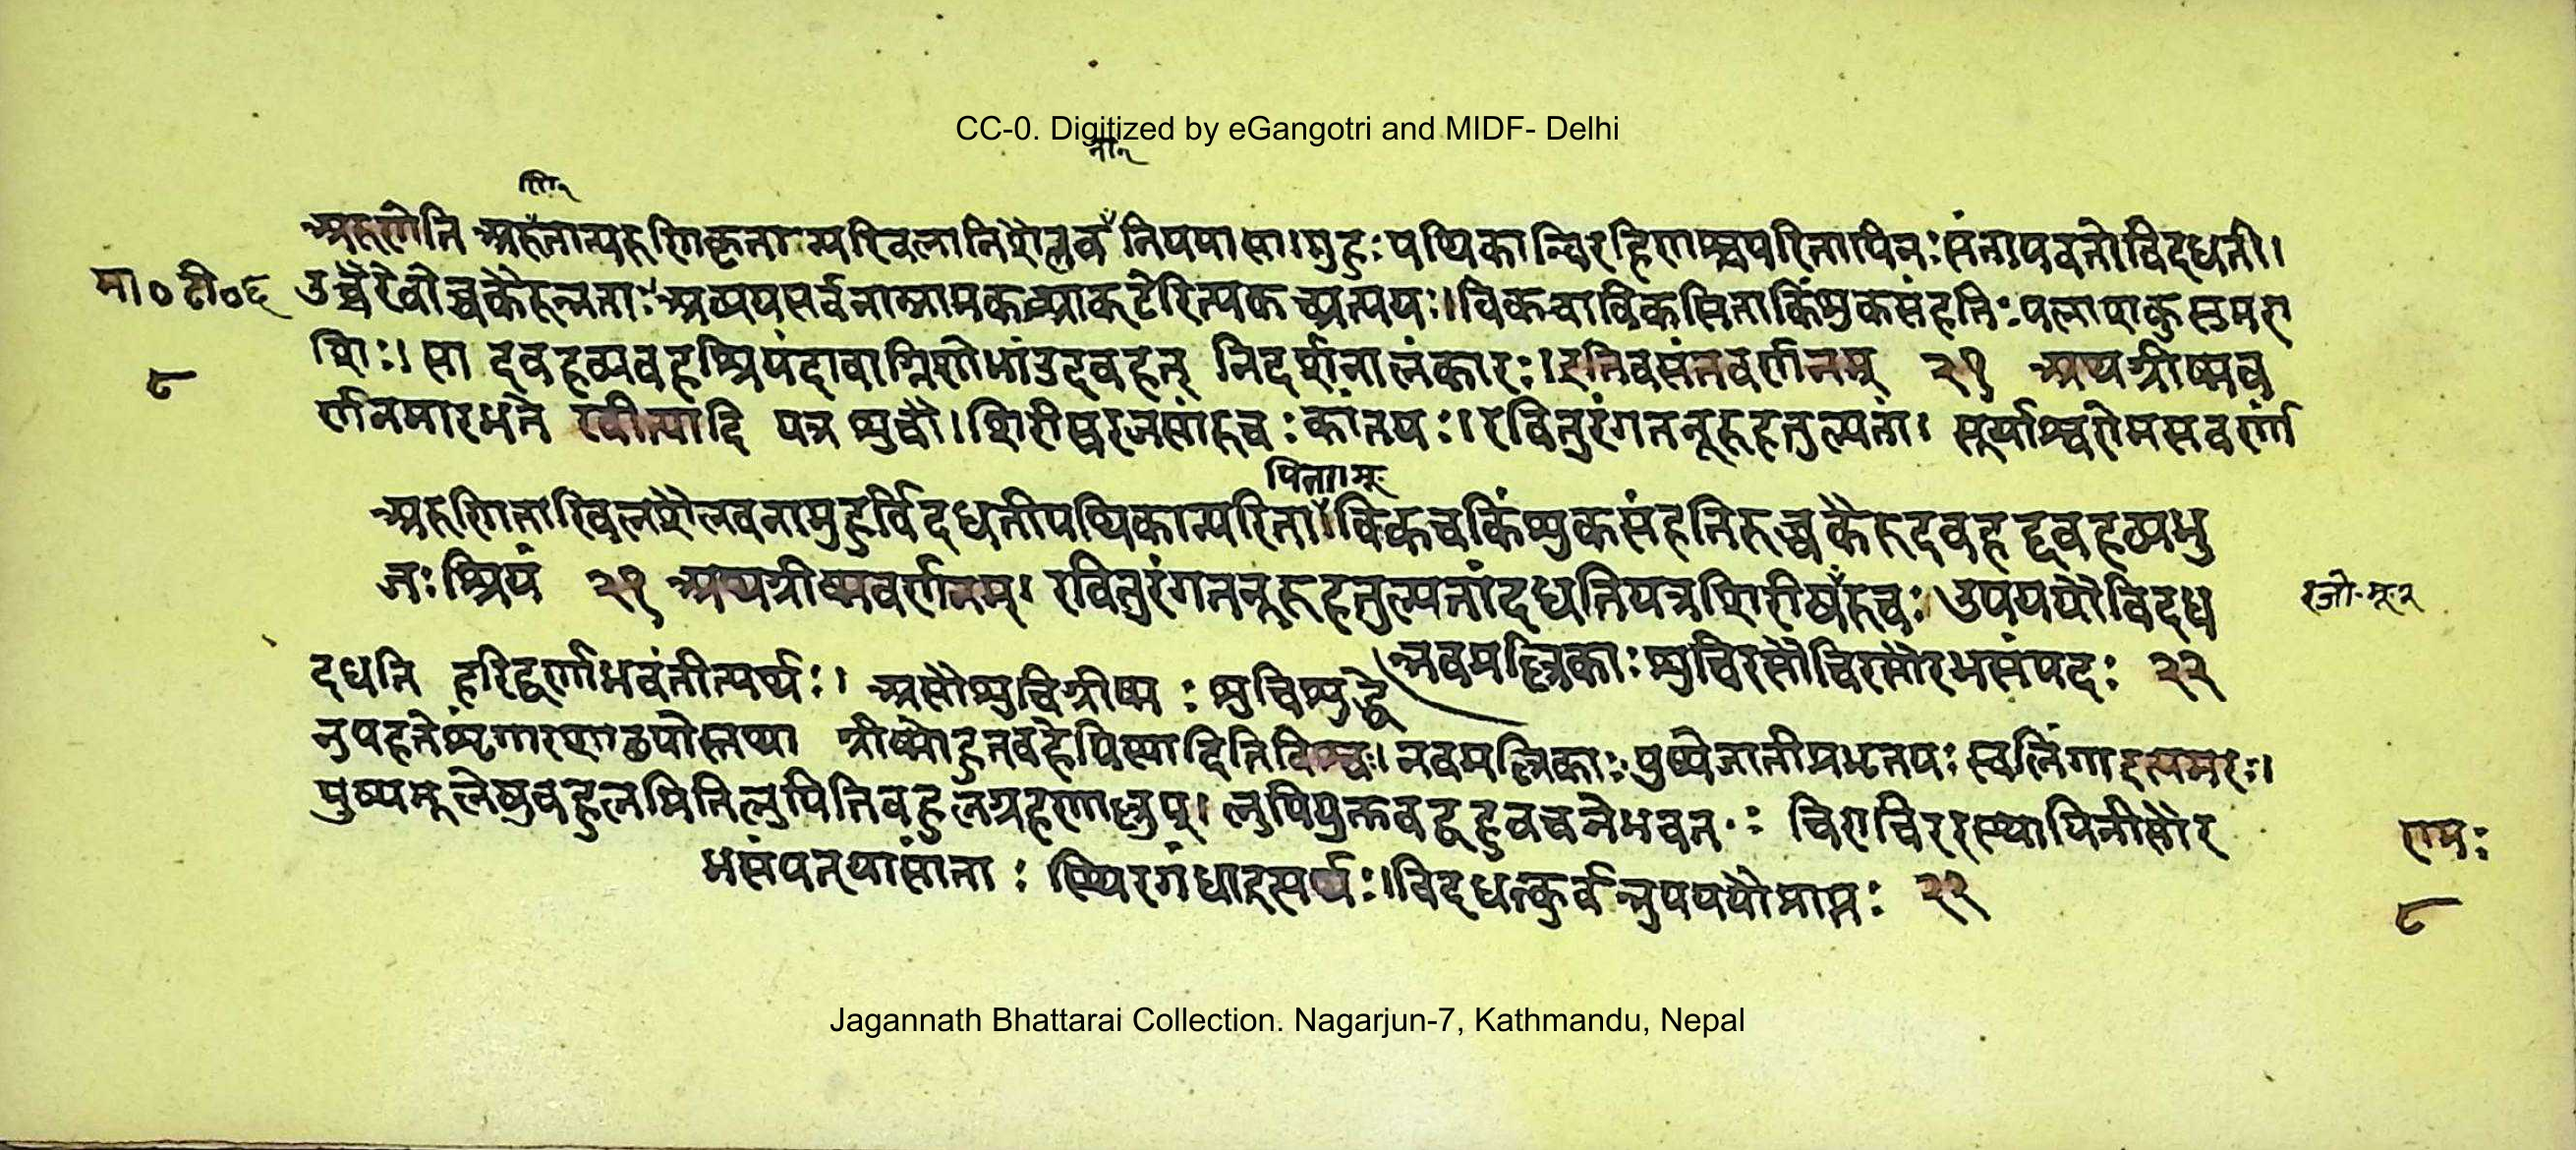 CC-0. Digitized by eGangotri and MIDF- Delhi
अरुणेति अरुतान्यरुणिकृतान्यखिलानिशैलव नियया सा।मुहुः पथिकान्विरहिणश्चपरितापिनःसंतापवतोविदधती।
मा०टी०६ उच्चैरेवोच्चकैरुन्नताःअव्ययसर्वनाम्नामकच्प्राक्टेरित्यकच्प्रत्ययः।विकचाविकसिताकिंशुकसंहतिःपलाशकुसुमरा
८ शिः। सा दवहव्यवहश्रियंदावाग्निशोभांउदवहत् निदर्शनालंकारः।इतिवसंतवर्णनम् २१ अथग्रीष्मव
र्णनमारभते रवीत्यादि यत्र शुचौ।शिरीषरजसांरुचःकांतयः।रवितुरंगतनूरुहतुल्यतां। सूर्याश्वरोमसवर्ण
पिताम्
अरुणिताखिलशैलवनामुहुर्विदधतीपथिकान्परिता विकचकिंशुकसंहतिरुच्चकैरुदवहद्दवहव्यभु
जःश्रियं २१ अथग्रीष्मवर्णनम्। रवितुरंगतनूरुहतुल्यतांदधतियत्रशिरीषरुचः।उपययौविदध रजो
न्नवमल्लिकाःशुचिरसौचिरसौरभसंपदः २२
दधति हरिद्वर्णाभवंतीत्यर्थः। असौशुचिग्रीष्मः शुचिशुद्धे
नुपहतेशृंगाराषाढयोस्तथा ग्रीष्मेहुतवहेपिस्यादितिविश्वः।नवमल्लिकाःपुष्पेजातीप्रभृतयःस्वलिंगाइत्यमरः।
पुष्पमूलेषुबहुलमितिलुपितिबहुलग्रहणाल्लुप्। लुपियुक्तवद्बहुवचनेभवतः चिराचिरस्थायिनीसौर
भसंपत्यासांताः स्थिरगंधाइत्यर्थः।विदधत्कुर्वन्नुपययौप्राप्तः २२
रामः
८
Jagannath Bhattarai Collection. Nagarjun-7, Kathmandu, Nepal